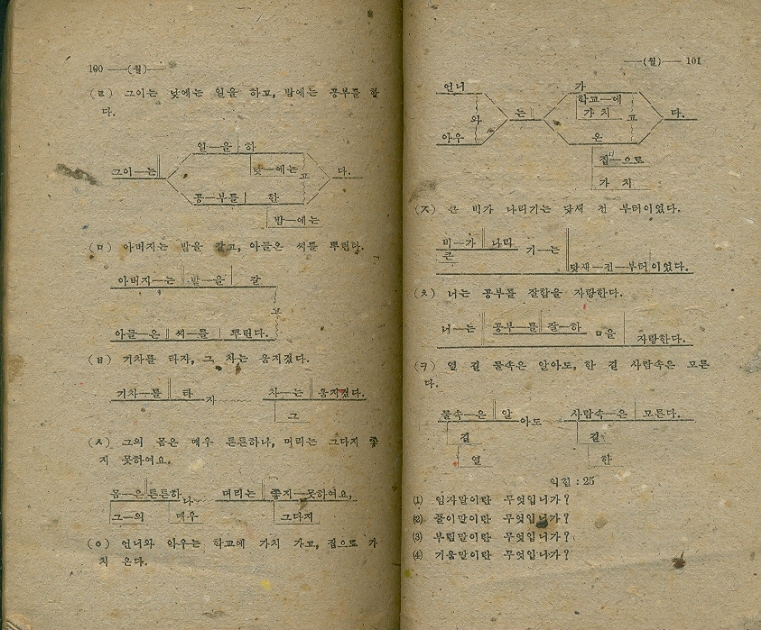 100 —(월)—
(ㄹ) 그이는 낮에는 일을 하고, 밤에는 공부를 한
다.
일—을 하
그이—는 낮—에는 고 다.
공—부를 한
밤—에는
(ㅁ) 아버지는 밭을 갈고, 아들은 씨를 뿌린다.
아버지—는 밭—을 갈
고
아들—은 씨—를 뿌린다.
(ㅂ) 기차를 타자, 그 차는 움직였다.
기차—를 타 자 차—는 움직였다.
그
(ㅅ) 그의 몸은 매우 튼튼하나, 머리는 그다지 좋
지 못하여요.
몸—은 튼튼하 나 머리는 좋지—못하여요.
그—의 매우 그다지
(ㅇ) 언니와 아우는 학교에 가치 가고, 집으로 가
치 온다.
—(월)— 101
언니 가
학교—에
와 는 가치 고 다.
아우 온
집—으로
가치
(ㅈ) 큰 비가 나리기는 닷새 전 부터이었다.
비—가 나리 기—는
큰
닷새—전—부터이었다.
(ㅊ) 너는 공부를 잘함을 자랑한다.
너—는 공부—를 잘—하 ㅁ을 자랑한다.
(ㅋ) 열 길 물속은 알아도, 한 길 사람속은 모른
다.
물속—은 알 아도 사람속—은 모른다.
길 길
열 한
익힘 : 25
(1) 임자말이란 무엇입니가?
(2) 풀이말이란 무엇입니가?
(3) 부림말이란 무엇입니가?
(4) 기움말이란 무엇입니가?